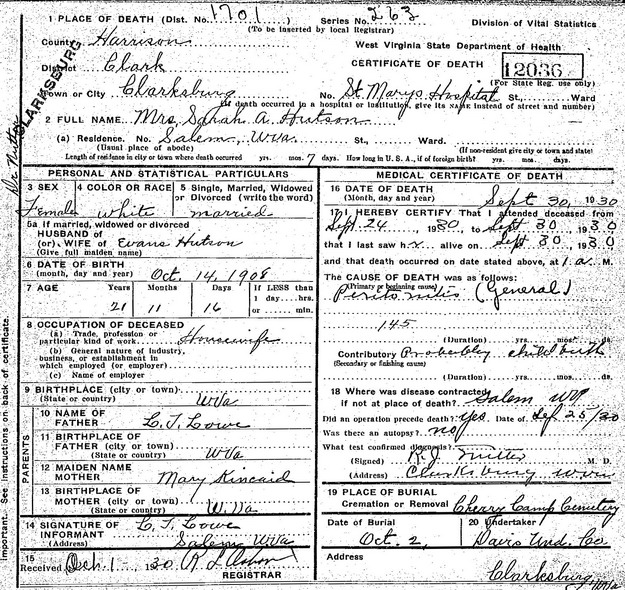 1 PLACE OF DEATH (Dist. No. 1701) Series No. 263 Division of Vital Statistics
(To be inserted by local Registrar)
County Harrison West Virginia State Department of Health
District Clark CERTIFICATE OF DEATH 12036
(For State Reg. use only)
Town or City Clarksburg No. St. Marys Hospital St., Ward
(If death occurred in a hospital or institution, give its NAME instead of street and number)
CLARKSBURG
2 FULL NAME Mrs. Sarah A. Hutson
(a) Residence. No. Salem, WVa St., Ward.
(Usual place of abode) (If non-resident give city or town and state)
Length of residence in city or town where death occurred yrs. mos. 7 days. How long in U. S. A., if of foreign birth? yrs. mos. days.
PERSONAL AND STATISTICAL PARTICULARS
3 SEX 4 COLOR OR RACE 5 Single, Married, Widowed or Divorced (write the word)
Female White married
5a If married, widowed or divorced
HUSBAND of
(or) WIFE of Evans Hutson
(Give full maiden name)
6 DATE OF BIRTH
(month, day and year) Oct. 14, 1908
7 AGE Years Months Days If LESS than
1 day....hrs.
or ...... min.
21 11 16
8 OCCUPATION OF DECEASED
(a) Trade, profession or
particular kind of work Housewife
(b) General nature of industry,
business, or establishment in
which employed (or employer)
(c) Name of employer
9 BIRTHPLACE (city or town)
(State or country) WVa
PARENTS
10 NAME OF
FATHER L. T. Lowe
11 BIRTHPLACE OF
FATHER (city or town)
(State or country) WVa
12 MAIDEN NAME
MOTHER Mary Kincaid
13 BIRTHPLACE OF
MOTHER (city or town)
(State or country) W.Va
14 SIGNATURE OF
INFORMANT L. T. Lowe
(Address) Salem WVa
15
Received Oct 1- 1930
REGISTRAR
MEDICAL CERTIFICATE OF DEATH
16 DATE OF DEATH
(Month, day and year) Sept 30, 1930
17 I HEREBY CERTIFY That I attended deceased from
Sept 24, 1930, to Sept 30, 1930
that I last saw her alive on Sept 30, 1930
and that death occurred on date stated above, at 1 a. M.
The CAUSE OF DEATH was as follows:
(Primary or beginning cause)
Peritonitis (General)
145
(Duration) yrs. mos. ds.
Contributory Probably child birth
(Secondary or finishing cause)
(Duration) yrs. mos. ds.
18 Where was disease contracted
if not at place of death? Salem WV
Did an operation precede death? Yes Date of Sep 25/30
Was there an autopsy? no
What test confirmed diagnosis?
(Signed) M. D.
(Address) Clarksburg
19 PLACE OF BURIAL
Cremation or Removal Cherry Camp Cemetery
Date of Burial 20 Undertaker
Oct. 2, Davis Und. Co.
Address
Clarksburg, WVa
important. See instructions on back of certificate.